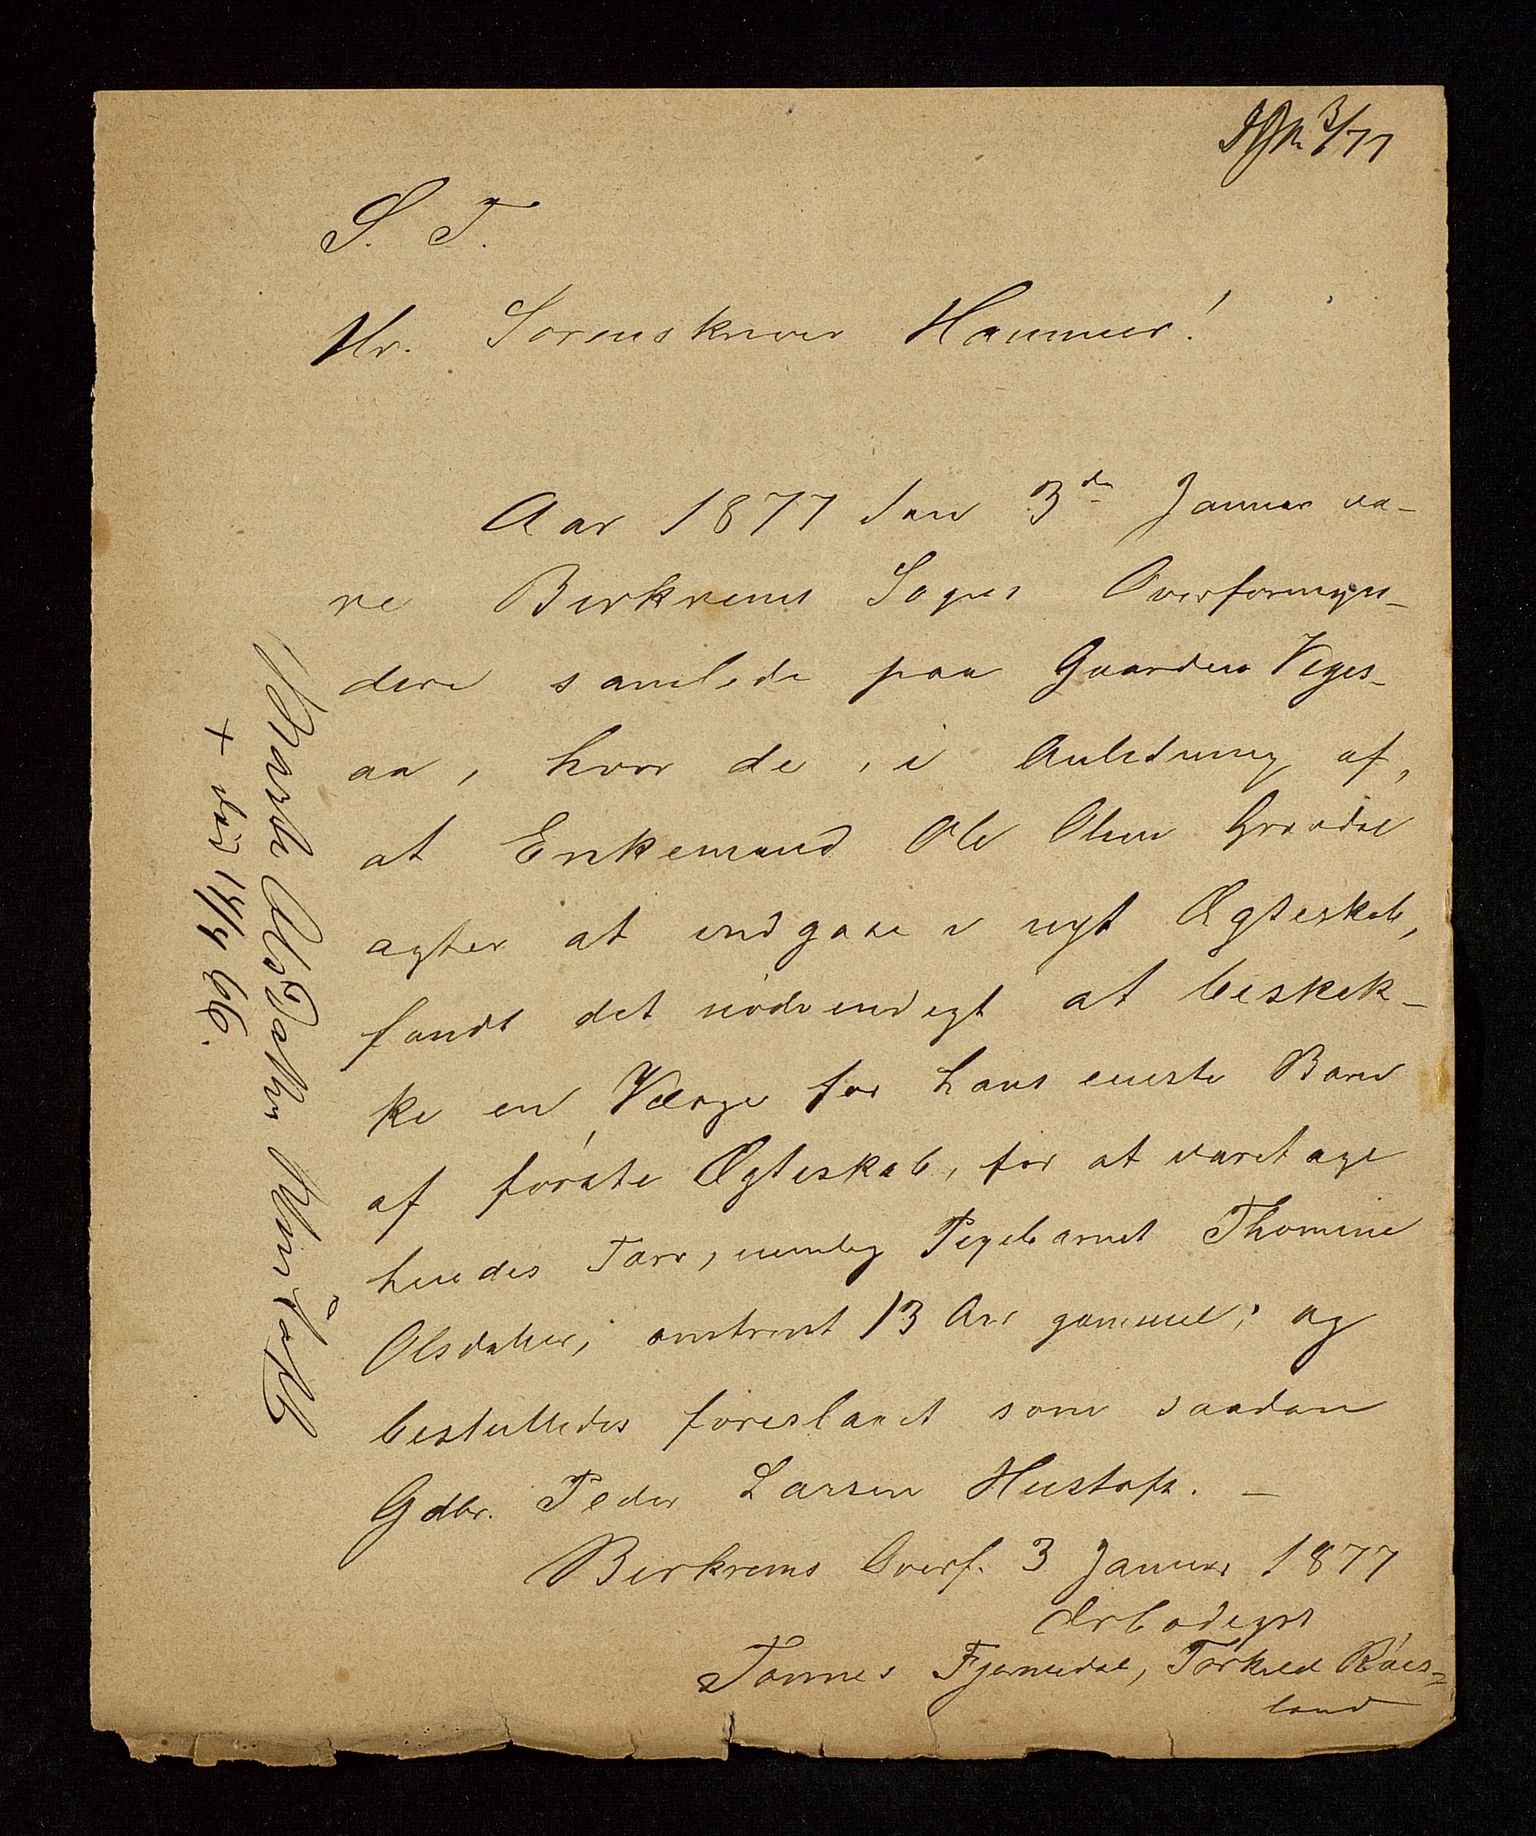 3/77
S. T.
Hr. Sorenskriver Hammer!
Aar 1877 den 3de Januar va-
re Birkrems Sognes Overformyn-
dere samlede paa Gaarden Veges-
aa, hvor de, i Anledning af,
at Enkemand Ole Olsen
agter at indgaae i nyt Ægteskab,
fandt det nødvendigt at beskik-
ke en Værge for hans eneste Barn
af første Ægteskab, for at varetage
hendes Tarv, nemlig Pigebarnet Thomine
Olsdatter, omtrent 13 Aar gammel; og
besluttedes foreslaaet som saadan
Gdbr. Peder Larsen Hustoft. —
Birkrems Overf. 3 Januar 1877
Ærbødigst
Tønnes Fjermedal, Torkild Røis=
land
Olsdatter
+ 14/4 66.